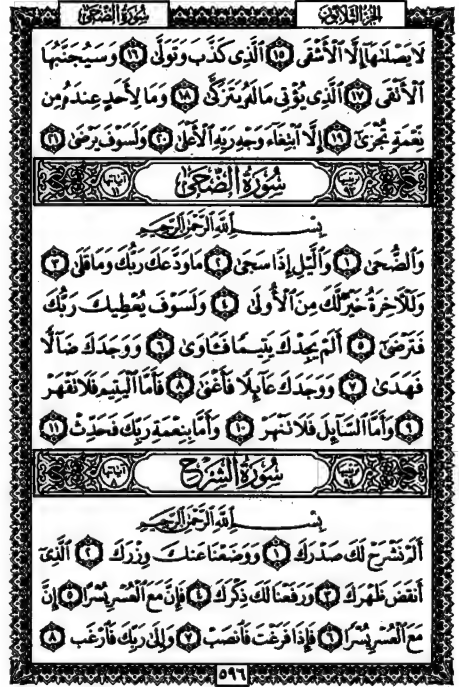 سُورَةُ الضُّحَىٰ الجُزْءُ الثَّلَاثُونَ
لَا يَصْلَىٰهَآ إِلَّا ٱلْأَشْقَى ١٥ ٱلَّذِى كَذَّبَ وَتَوَلَّىٰ ١٦ وَسَيُجَنَّبُهَا
ٱلْأَتْقَى ١٧ ٱلَّذِى يُؤْتِى مَالَهُۥ يَتَزَكَّىٰ ١٨ وَمَا لِأَحَدٍ عِندَهُۥ مِن
نِّعْمَةٍ تُجْزَىٰٓ ١٩ إِلَّا ٱبْتِغَآءَ وَجْهِ رَبِّهِ ٱلْأَعْلَىٰ ٢٠ وَلَسَوْفَ يَرْضَىٰ ٢١
سُورَةُ الضُّحَىٰ
بِسْمِ ٱللَّهِ ٱلرَّحْمَٰنِ ٱلرَّحِيمِ
وَٱلضُّحَىٰ ١ وَٱلَّيْلِ إِذَا سَجَىٰ ٢ مَا وَدَّعَكَ رَبُّكَ وَمَا قَلَىٰ ٣
وَلَلْءَاخِرَةُ خَيْرٌ لَّكَ مِنَ ٱلْأُولَىٰ ٤ وَلَسَوْفَ يُعْطِيكَ رَبُّكَ
فَتَرْضَىٰٓ ٥ أَلَمْ يَجِدْكَ يَتِيمًا فَـَٔاوَىٰ ٦ وَوَجَدَكَ ضَآلًّا
فَهَدَىٰ ٧ وَوَجَدَكَ عَآئِلًا فَأَغْنَىٰ ٨ فَأَمَّا ٱلْيَتِيمَ فَلَا تَقْهَرْ
٩ وَأَمَّا ٱلسَّآئِلَ فَلَا تَنْهَرْ ١٠ وَأَمَّا بِنِعْمَةِ رَبِّكَ فَحَدِّثْ ١١
سُورَةُ الشَّرْحِ
بِسْمِ ٱللَّهِ ٱلرَّحْمَٰنِ ٱلرَّحِيمِ
أَلَمْ نَشْرَحْ لَكَ صَدْرَكَ ١ وَوَضَعْنَا عَنكَ وِزْرَكَ ٢ ٱلَّذِىٓ
أَنقَضَ ظَهْرَكَ ٣ وَرَفَعْنَا لَكَ ذِكْرَكَ ٤ فَإِنَّ مَعَ ٱلْعُسْرِ يُسْرًا ٥ إِنَّ
مَعَ ٱلْعُسْرِ يُسْرًا ٦ فَإِذَا فَرَغْتَ فَٱنصَبْ ٧ وَإِلَىٰ رَبِّكَ فَٱرْغَب ٨
٥٩٦